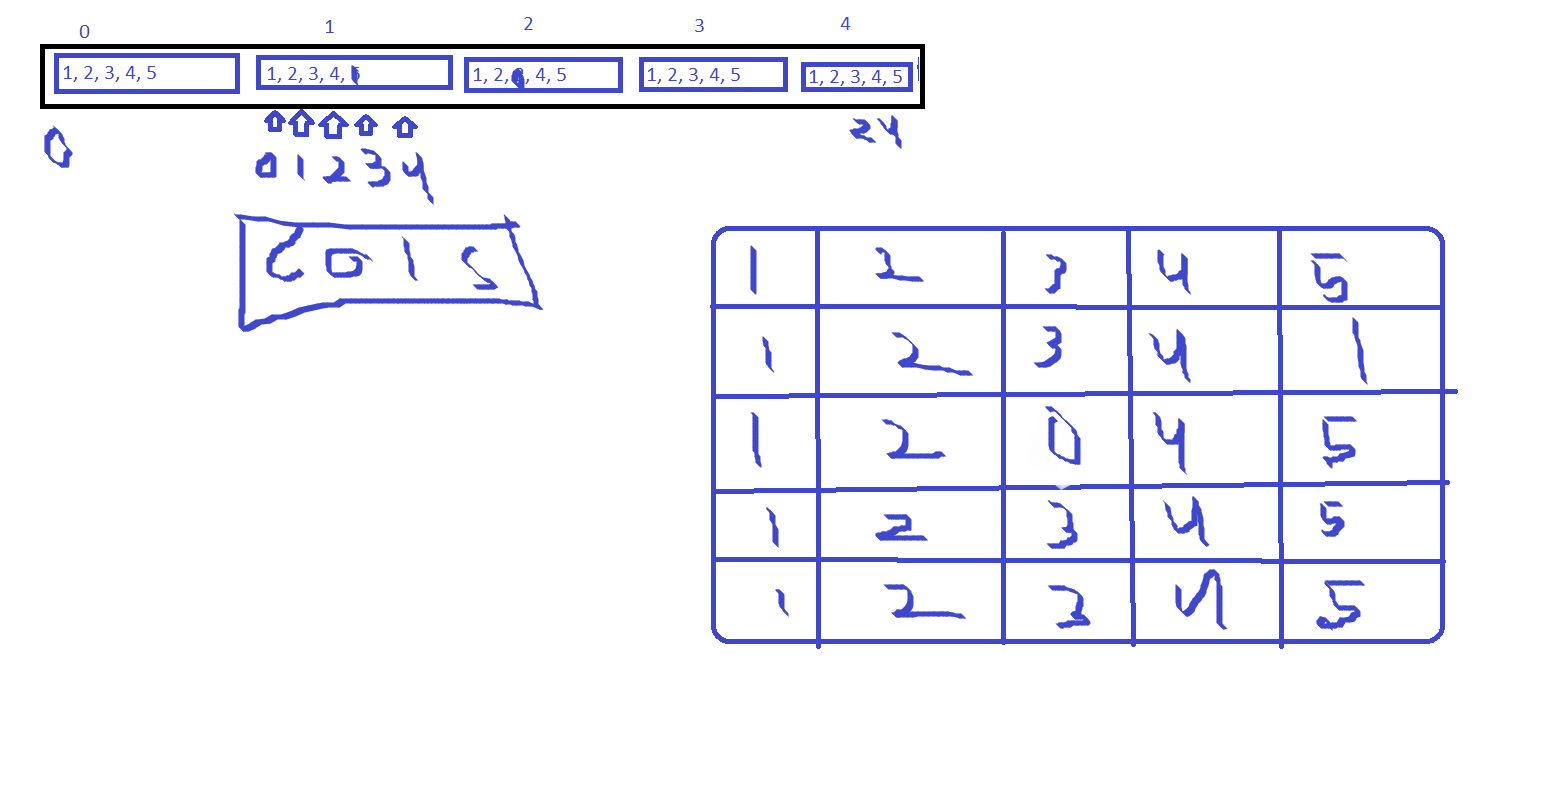 0 1 2 3 4
1, 2, 3, 4, 5 1, 2, 3, 4, 1, 2, 0, 4, 5 1, 2, 3, 4, 5 1, 2, 3, 4, 5
0 24
0 1 2 3 4
Cols
1 2 3 4 5
1 2 3 4 1
1 2 0 4 5
1 2 3 4 5
1 2 3 4 5